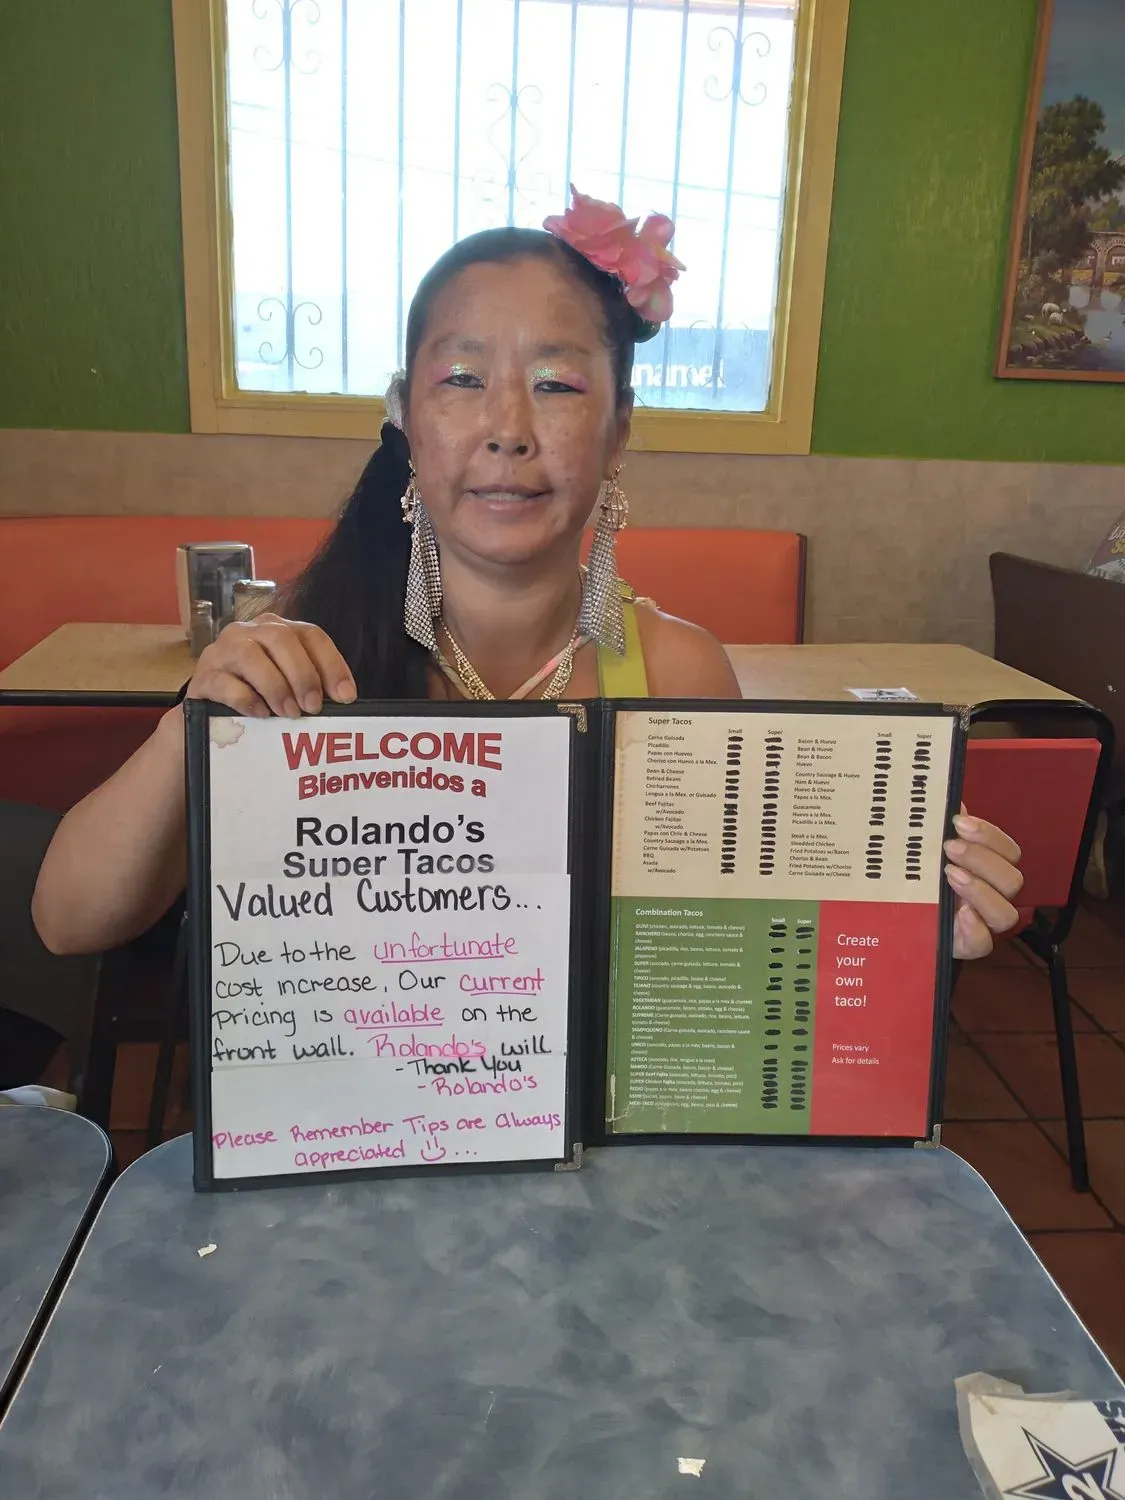 WELCOME
Bienvenidos a
Rolando's
Super Tacos
Valued Customers...
Due to the unfortunate
cost increase, Our current
pricing is available on the
front wall. Rolando's will
- Thank You
- Rolando's
Please Remember Tips are Always
appreciated ...
Super Tacos
Small Super
Carne Guisada
Picadillo
Papas con Huevos
Chorizo con Huevo a la Mex.
Bean & Cheese
Refried Beans
Chicharrones
Lengua a la Mex. or Guisado
Beef Fajitas
w/Avocado
Chicken Fajitas
w/Avocado
Papas con Chile & Cheese
Country Sausage a la Mex.
Carne Guisada w/Potatoes
BBQ
Asada
w/Avocado
Small Super
Bacon & Huevo
Bean & Huevo
Bean & Bacon
Huevo
Country Sausage & Huevo
Ham & Huevo
Huevo & Cheese
Papas a la Mex.
Guacamole
Huevo a la Mex.
Picadillo a la Mex.
Steak a la Mex.
Shredded Chicken
Fried Potatoes w/Bacon
Chorizo & Bean
Fried Potatoes w/Chorizo
Carne Guisada w/Cheese
Combination Tacos
Small Super
RANCHERO (beans, chorizo, egg, ranchero sauce &
cheese)
JALAPENO (picadillo, rice, beans, lettuce, tomato &
jalapenos)
SUPER (avocado, carne guisada, lettuce, tomato &
cheese)
TIPICO (avocado, picadillo, beans & cheese)
TEJANO (country sausage & egg, beans, avocado &
cheese)
VEGETARIAN (guacamole, rice, papas a la mex & cheese)
ROLANDO (guacamole, beans, potato, egg & cheese)
SUPREME (Carne guisada, avocado, rice, beans, lettuce,
tomato & cheese)
TAMPIQUENO (Carne guisada, avocado, ranchero sauce
& cheese)
UNICO (avocado, papas a la mex, beans, bacon &
cheese)
AZTECA (avocado, rice, lengua a la mex)
NANDO (Carne Guisada, beans, bacon & cheese)
SUPER Beef Fajita (avocado, lettuce, tomato, pico)
SUPER Chicken Fajita (avocado, lettuce, tomato, pico)
Create
your
own
taco!
Prices vary
Ask for details